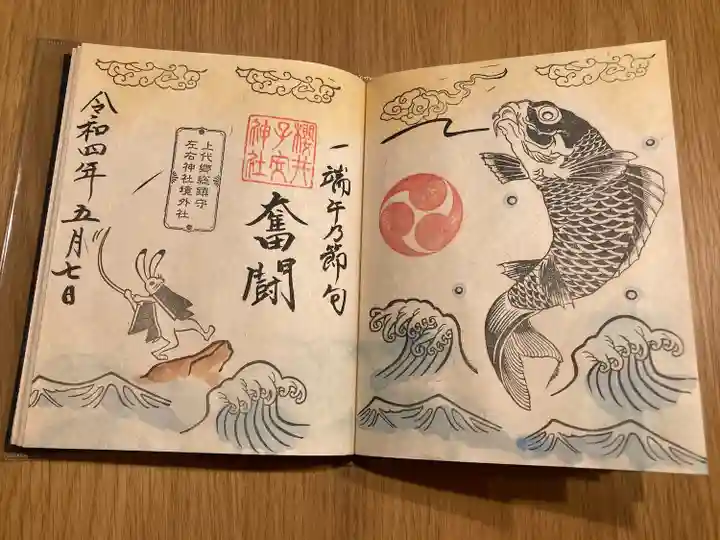 一端午乃節句
櫻井
子安
神社
奮闘
上代郷総鎮守
左右神社境外社
令和四年五月七日